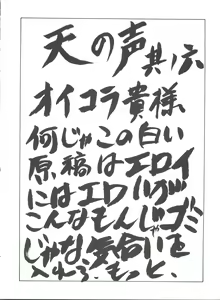 天の声 其ノ六
オイコラ貴様
何じゃこの白い
原稿はエロイ
にはエロいが
こんなもんじゃゴミ
じゃな、気合いを
入れろ、もっと、